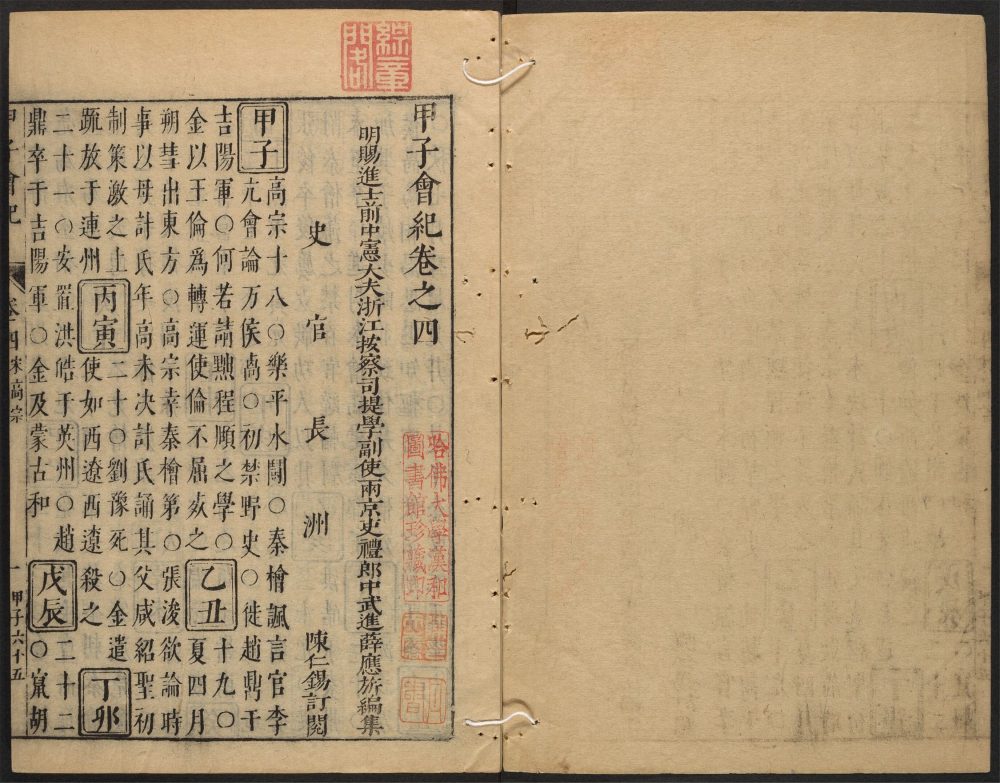 甲子會紀卷之四
明賜進士前中憲大夫浙江按察司提學副使兩京吏禮郎中武進薛應旂編集
史官長洲陳仁錫訂閱
甲子高宗十八〇樂平水鬬〇秦檜諷言官李
吉陽軍〇何若請黜程頤之學〇乙丑十九〇
金以王倫爲轉運使倫不屈殺之夏四月
朔彗出東方〇高宗幸秦檜第〇張浚欲論時
事以母計氏年高未決計氏誦其父咸紹聖初
制策激之上
疏放于連州丙寅二十〇劉豫死〇金遣
使如西遼西遼殺之丁卯
二十一〇安置洪皓于英州〇趙
鼎卒于吉陽軍〇金及蒙古和戊辰二十二
〇竄胡
甲子會紀 卷四 宋高宗 一 甲子六十五
哈佛大學漢和圖書館珍藏印